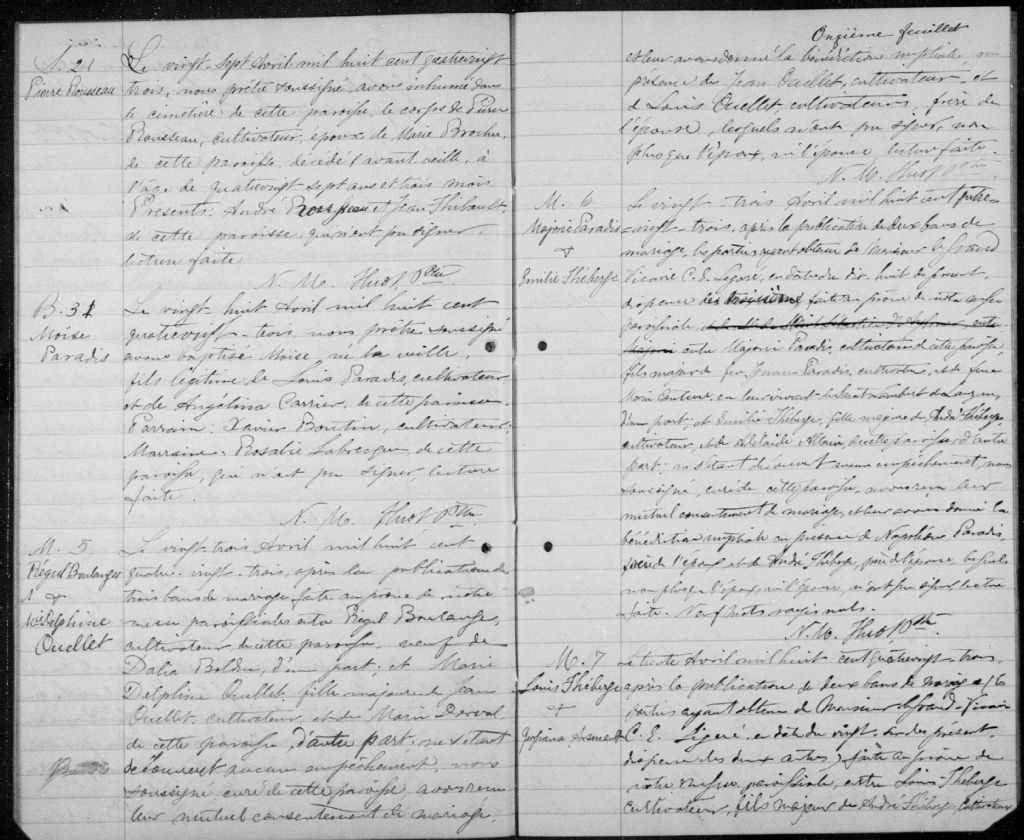 S. 21
Pierre Rousseau
Le vingt-sept Avril mil huit cent quatrevingt
trois, nous prêtre soussigné avons inhumé dans
le cimetière de cette paroisse, le corps de Pierre
Rousseau, cultivateur, époux de Marie Brochu,
de cette paroisse, décédé l'avant veille, à
l'âge de quatrevingt sept ans et trois mois.
Présents: André Rousseau et Jean Thibault,
de cette paroisse, qui n'ont pu signer,
lecture faite
N. M. Huot Ptre
B. 31
Moïse
Paradis
Le vingt huit Avril mil huit cent
quatrevingt-trois, nous prêtre soussigné
avons baptisé Moïse, né la veille,
fils légitime de Louis Paradis, cultivateur
et de Angélina Carrier, de cette paroisse.
Parrain: Xavier Boutin, cultivateur;
Marraine: Rosalie Labrecque, de cette
paroisse, qui n'ont pu signer, lecture
faite.
N. M. Huot Ptre
M. 5
Régul Boulanger
&
Mie Delphine
Ouellet
Le vingt-trois Avril mil huit cent
quatre-vingt-trois, après la publication de
trois bans de mariage faite au prône de notre
messe paroissiale entre Régul Boulanger,
cultivateur de cette paroisse, veuf de
Dalia Bolduc, d'un part; et Marie
Delphine Ouellet fille majeure de Jean
Ouellet, cultivateur, et de Marie Dorval,
de cette paroisse, d'autre part; ne s'étant
découvert aucun empêchement, nous
soussigné curé de cette paroisse avons reçu
leur mutuel consentement de mariage,
Onzième feuillet
et leur avons donné la bénédiction nuptiale en
présence de Jean Ouellet, cultivateur, et
de Louis Ouellet, cultivateurs, frère de
l'épouse, lesquels n'ont pu signer, non
plus que l'époux, ni l'épouse lecture faite.
N. M. Huot Ptre
M. 6
Majorie Paradis
&
Emilie Théberge
Le vingt-trois Avril mil huit cent quatre-
vingt-trois, après la publication de deux bans de
mariage, les parties ayant obtenu de Monsieur le Grand
Vicaire C. E. Légaré, en date du dix-huit du présent,
dispense du troisième faite au prône de notre messe
paroissiale
entre Majorie Paradis, cultivateur de cette paroisse,
fils majeur de feu Paradis, cultivateur, et de feue
Marie Couture, en leur vivant de Saint Lambert de Lauzon,
d'une part, et Emilie Théberge, fille majeure de André Théberge,
cultivateur, et de Adélaïde Allain, de cette paroisse, d'autre
part; ne s'étant découvert aucun empêchement, nous
soussigné, curé de cette paroisse, avons reçu leur
mutuel consentement de mariage, et leur avons donné la
bénédiction nuptiale en présence de Napoléon Paradis,
frère de l'époux et de André Théberge, père de l'épouse, lesquels
non plus que l'époux, ni l'épouse, n'ont pu signer, lecture
faite. Neuf mots rayés nuls.
N. M. Huot Ptre
M. 7
Louis Théberge
&
Georgiana Arsenault
Le trente Avril mil huit cent quatrevingt-trois,
après la publication de deux bans de mariage les
parties ayant obtenu de Monsieur le Grand-Vicaire
C. E. Légaré en date du vingt-six du présent,
dispense des deux autres, faite au prône de
notre messe paroissiale, entre Louis Théberge
cultivateur, fils majeur de André Théberge, cultivateur